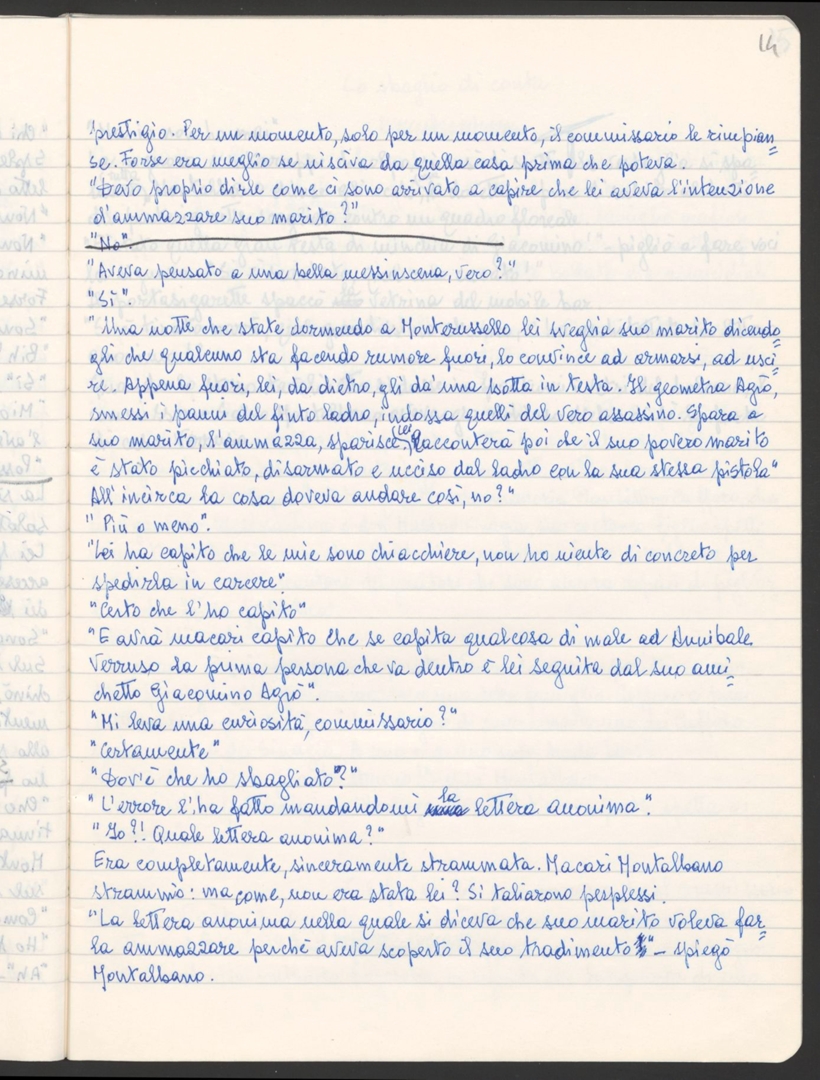 14
prestigio. Per un momento, solo per un momento, il commissario le rimpian=
se. Forse era meglio se nisciva da quella casa prima che poteva.
"Devo proprio dirle come ci sono arrivato a capire che lei aveva l'intenzione
d'ammazzare suo marito?"
"No".
"Aveva pensato a una bella messinscena, vero?"
"Sì".
"Una notte che state dormendo a Monterussello lei sveglia suo marito dicendo=
gli che qualcuno sta facendo rumore fuori, lo convince ad armarsi, ad usci=
re. Appena fuori, lei, da dietro, gli dà una botta in testa. Il geometra Agrò,
smessi i panni del finto ladro, indossa quelli del vero assassino. Spara a
suo marito, l'ammazza, sparisce. Lei racconterà poi che il suo povero marito
è stato picchiato, disarmato e ucciso dal ladro con la sua stessa pistola"
All'incirca la cosa doveva andare così, no?"
"Più o meno".
"Lei ha capito che le mie sono chiacchiere, non ho niente di concreto per
spedirla in carcere".
"Certo che l'ho capito"
"E avrà macari capito che se capita qualcosa di male ad Annibale
Verruso la prima persona che va dentro è lei seguita dal suo ami=
chetto Giacomino Agrò".
"Mi leva una curiosità, commissario?"
"Certamente"
"Dov'è che ho sbagliato?"
"L'errore l'ha fatto mandandomi la lettera anonima".
"Io?! Quale lettera anonima?"
Era completamente, sinceramente strammata. Macari Montalbano
strammò: ma come, non era stata lei? Si taliarono perplessi.
"La lettera anonima nella quale si diceva che suo marito voleva far=
la ammazzare perché aveva scoperto il suo tradimento" - spiegò
Montalbano.